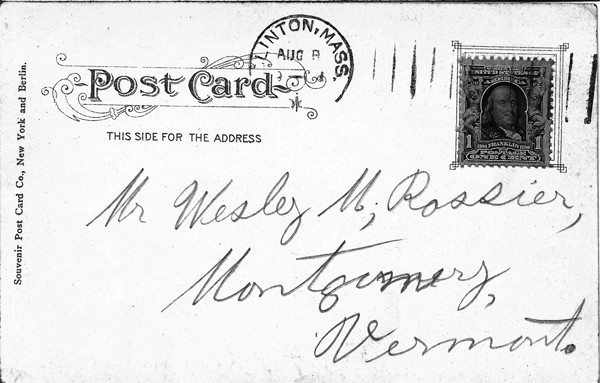 LINTON, MASS.
AUG 8
POST CARD
THIS SIDE FOR THE ADDRESS
Souvenir Post Card Co., New York and Berlin.
POSTAGE
ONE CENT
1 FRANKLIN 1
Mr Wesley M, Rossier,
Montgomery,
Vermont.